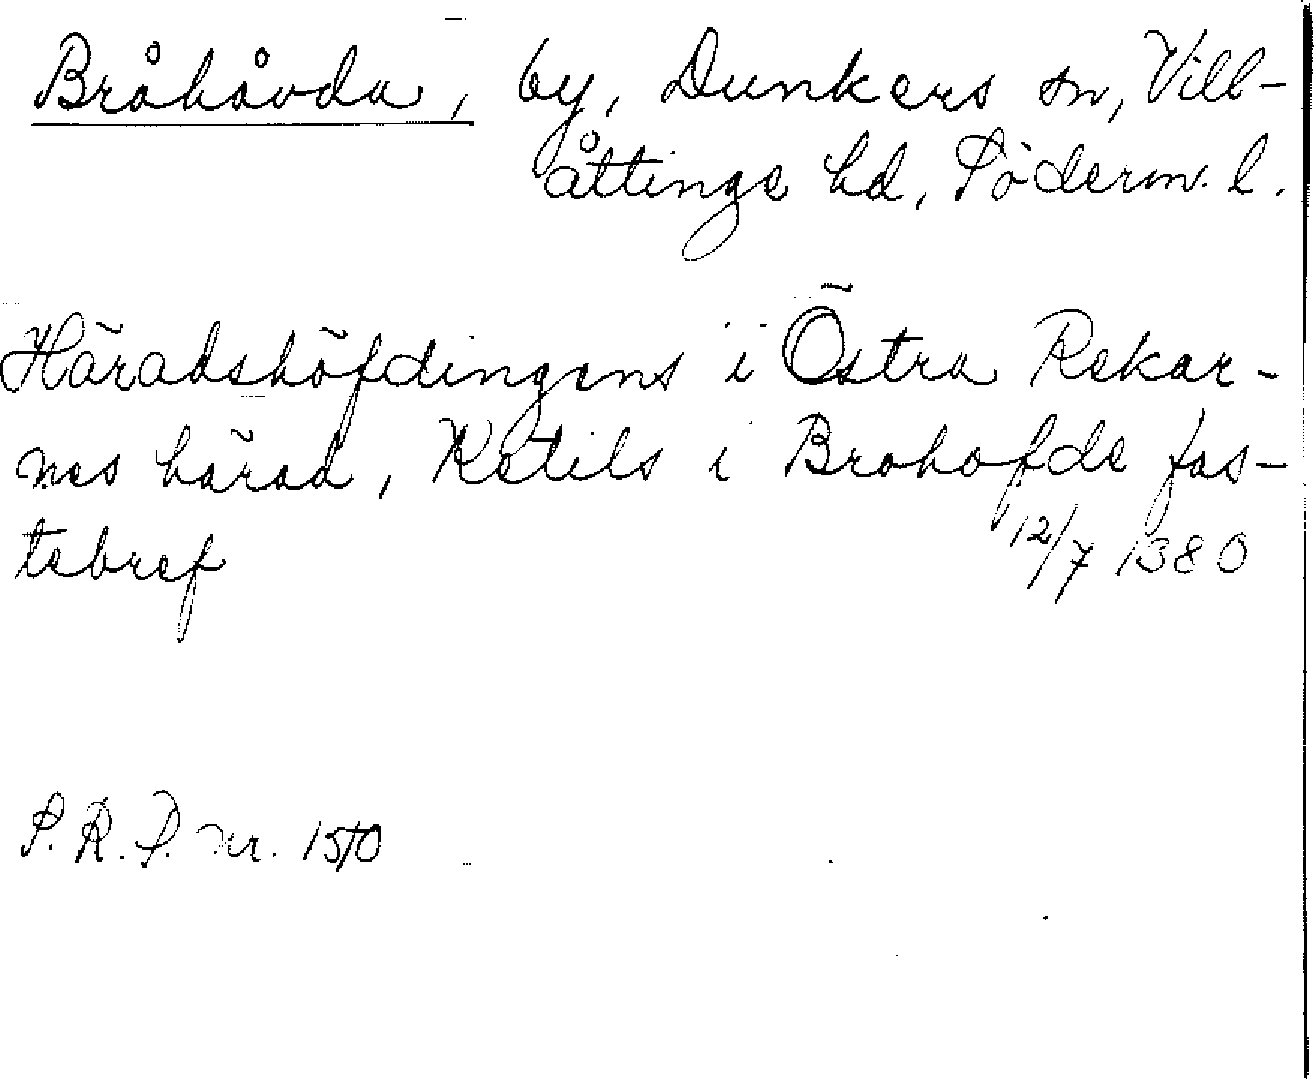 Bråhåvda, by, Dunkers sn, Vill-
åttinge hd, Söderm. l.
Häradshöfdingens i Östra Rekar-
nes härad, Ketils i Brohofde fas-
tebref 12/7 1380
S. R. P. nr. 1510